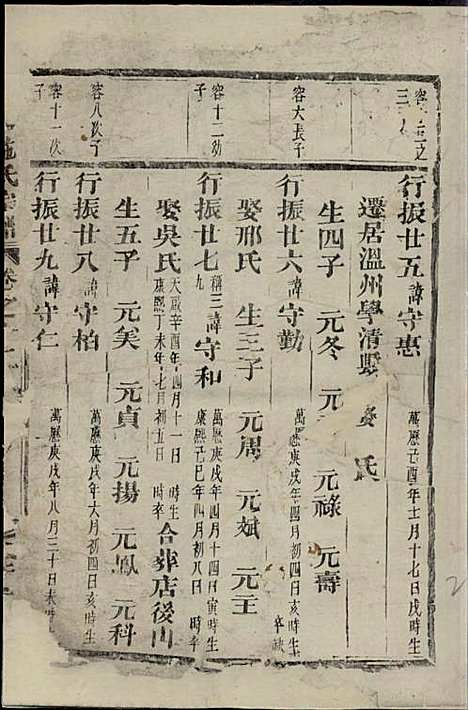 行振廿五諱守惠 萬歷己酉年十一月十七日戌時生
遷居溫州學清娶 氏
生四子 元冬 元 元祿 元壽
容大長子
行振廿六諱守勤 萬歷庚戌年四月初四日亥時生 卒缺
娶邢氏 生三子 元周 元斌 元王
容十二幼子
行振廿七九稱三諱守和 萬歷庚戌年四月十四日寅時生 康熙己巳年四月初八日 時卒
娶吳氏 天啟辛酉年四月十一日 時生 康熙丁未年七月初五日 時卒 合葬店後山
生五子 元奚 元貞 元揚 元鳳 元科
容八次子
行振廿八諱守柏 萬歷庚戌年六月初四日亥時生
容十一次子
行振廿九諱守仁 萬歷庚戌年八月三十日未時
氏宗譜 卷之